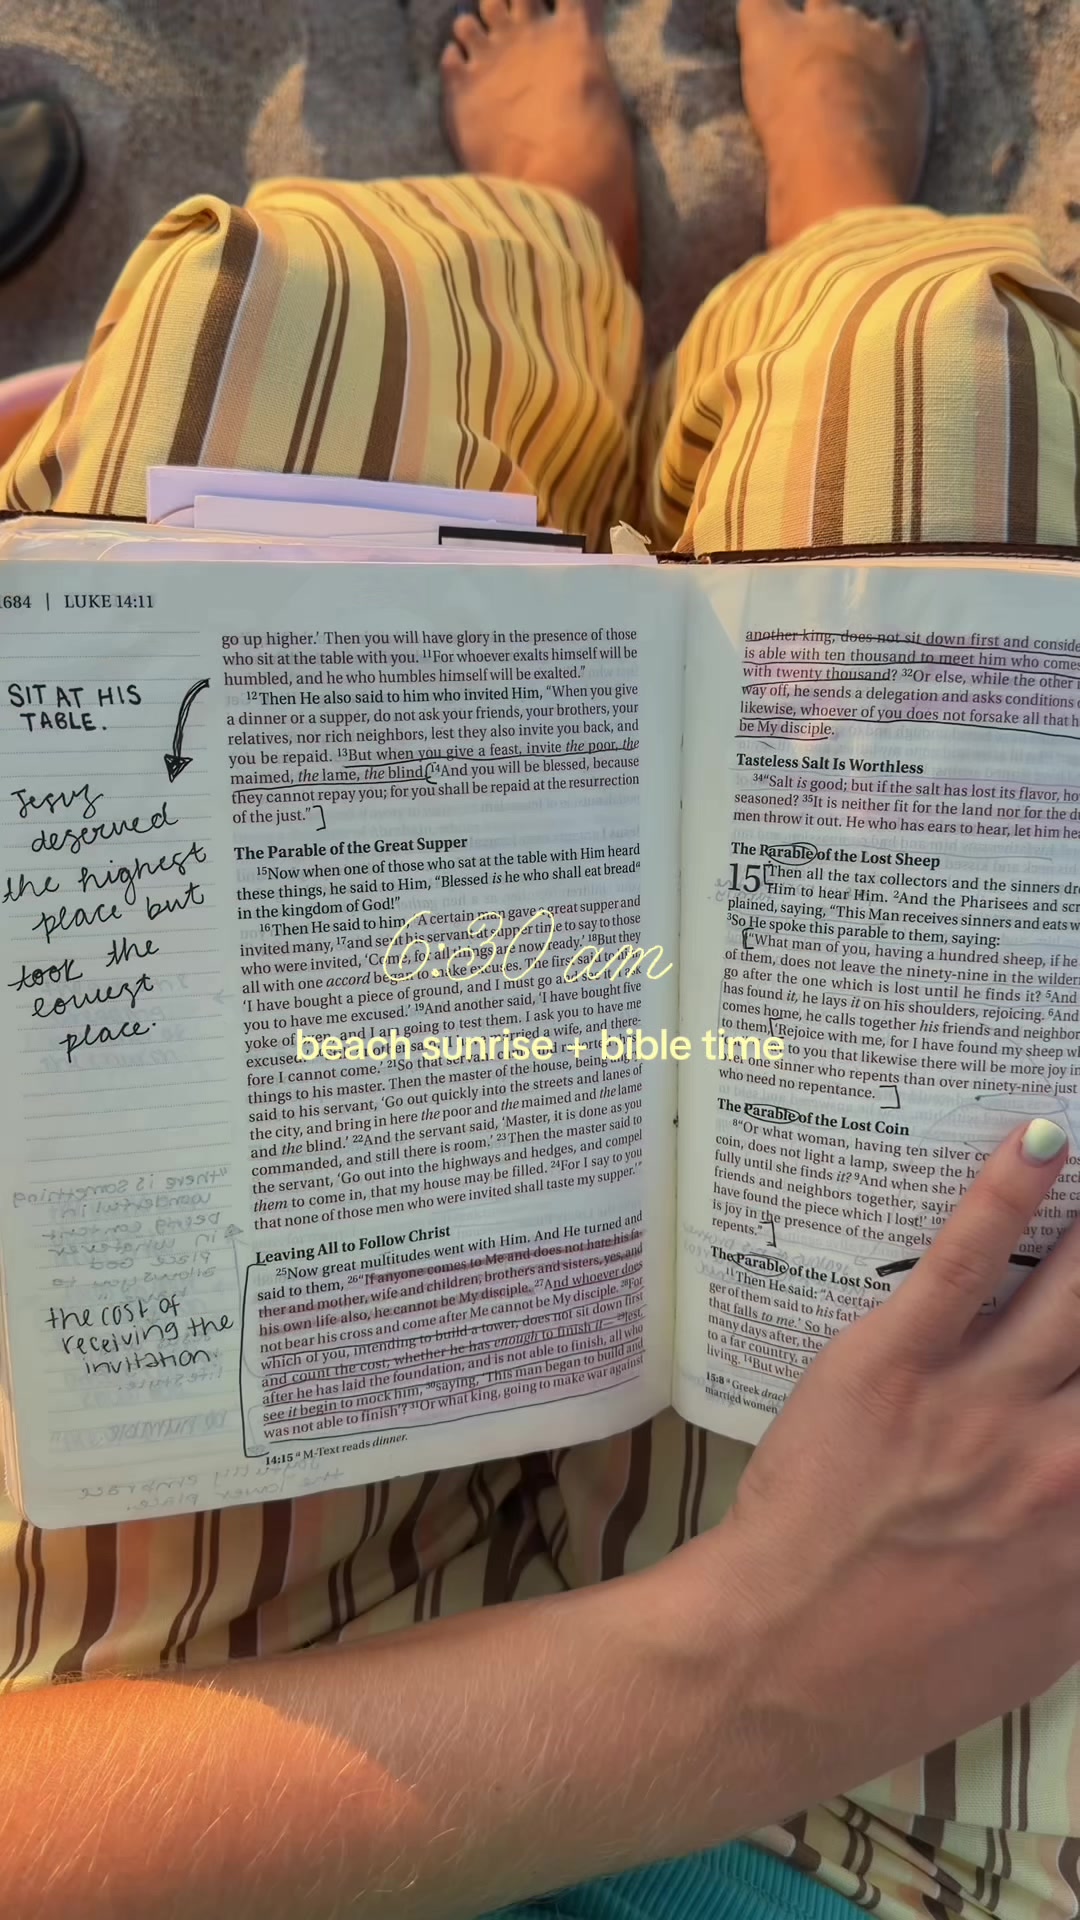 684 | LUKE 14:11
SIT AT HIS
TABLE.
Jesus
deserved
the highest
place but
took the
lowest
place.
the cost of
receiving the
invitation.
go up higher.' Then you will have glory in the presence of those
who sit at the table with you. 11For whoever exalts himself will be
humbled, and he who humbles himself will be exalted.”
12Then He also said to him who invited Him, “When you give
a dinner or a supper, do not ask your friends, your brothers, your
relatives, nor rich neighbors, lest they also invite you back, and
you be repaid. 13But when you give a feast, invite the poor, the
maimed, the lame, the blind. 14And you will be blessed, because
they cannot repay you; for you shall be repaid at the resurrection
of the just.”
The Parable of the Great Supper
15Now when one of those who sat at the table with Him heard
these things, he said to Him, “Blessed is he who shall eat breada
in the kingdom of God!”
16Then He said to him, “A certain man gave a great supper and
invited many, 17and sent his servant at supper time to say to those
who were invited, ‘Come, for all things are now ready.’ 18But they
all with one accord began to make excuses. The first said to him,
‘I have bought a piece of ground, and I must go and see it. I ask
you to have me excused.’ 19And another said, ‘I have bought five
yoke of oxen, and I am going to test them. I ask you to have me
excused. married a wife, and there-
fore I cannot come.’ 21So that servant
things to his master. Then the master of the house, being
said to his servant, ‘Go out quickly into the streets and lanes of
the city, and bring in here the poor and the maimed and the lame
and the blind.’ 22And the servant said, ‘Master, it is done as you
commanded, and still there is room.’ 23Then the master said to
the servant, ‘Go out into the highways and hedges, and compel
them to come in, that my house may be filled. 24For I say to you
that none of those men who were invited shall taste my supper.’”
Leaving All to Follow Christ
25Now great multitudes went with Him. And He turned and
said to them, 26“If anyone comes to Me and does not hate his fa-
ther and mother, wife and children, brothers and sisters, yes, and
his own life also, he cannot be My disciple. 27And whoever does
not bear his cross and come after Me cannot be My disciple. 28For
which of you, intending to build a tower, does not sit down first
and count the cost, whether he has enough to finish it— 29lest,
after he has laid the foundation, and is not able to finish, all who
see it begin to mock him, 30saying, ‘This man began to build and
was not able to finish’? 31Or what king, going to make war against
14:15 a M-Text reads dinner.
another king, does not sit down first and conside
is able with ten thousand to meet him who comes
with twenty thousand? 32Or else, while the other
way off, he sends a delegation and asks conditions
likewise, whoever of you does not forsake all that h
be My disciple.
Tasteless Salt Is Worthless
34“Salt is good; but if the salt has lost its flavor, ho
seasoned? 35It is neither fit for the land nor for the du
men throw it out. He who has ears to hear, let him hea
The Parable of the Lost Sheep
15 Then all the tax collectors and the sinners dr
Him to hear Him. 2And the Pharisees and scr
plained, saying, “This Man receives sinners and eats w
3So He spoke this parable to them, saying:
4“What man of you, having a hundred sheep, if he
of them, does not leave the ninety-nine in the wildern
go after the one which is lost until he finds it? 5And
has found it, he lays it on his shoulders, rejoicing. 6And
comes home, he calls together his friends and neighbor
to them, ‘Rejoice with me, for I have found my sheep wh
to you that likewise there will be more joy in
over one sinner who repents than over ninety-nine just
who need no repentance.
The Parable of the Lost Coin
8“Or what woman, having ten silver co
coin, does not light a lamp, sweep the h
fully until she finds it? 9And when she h
friends and neighbors together, sayin with m
have found the piece which I lost!’ 10
is joy in the presence of the angels one s
repents.”
The Parable of the Lost Son
11Then He said: “A certain
ger of them said to his fath
that falls to me.’ So he
many days after, the
to a far country, a
living. 14But whe
15:8 a Greek drac
married women
6:30 am
beach sunrise + bible time